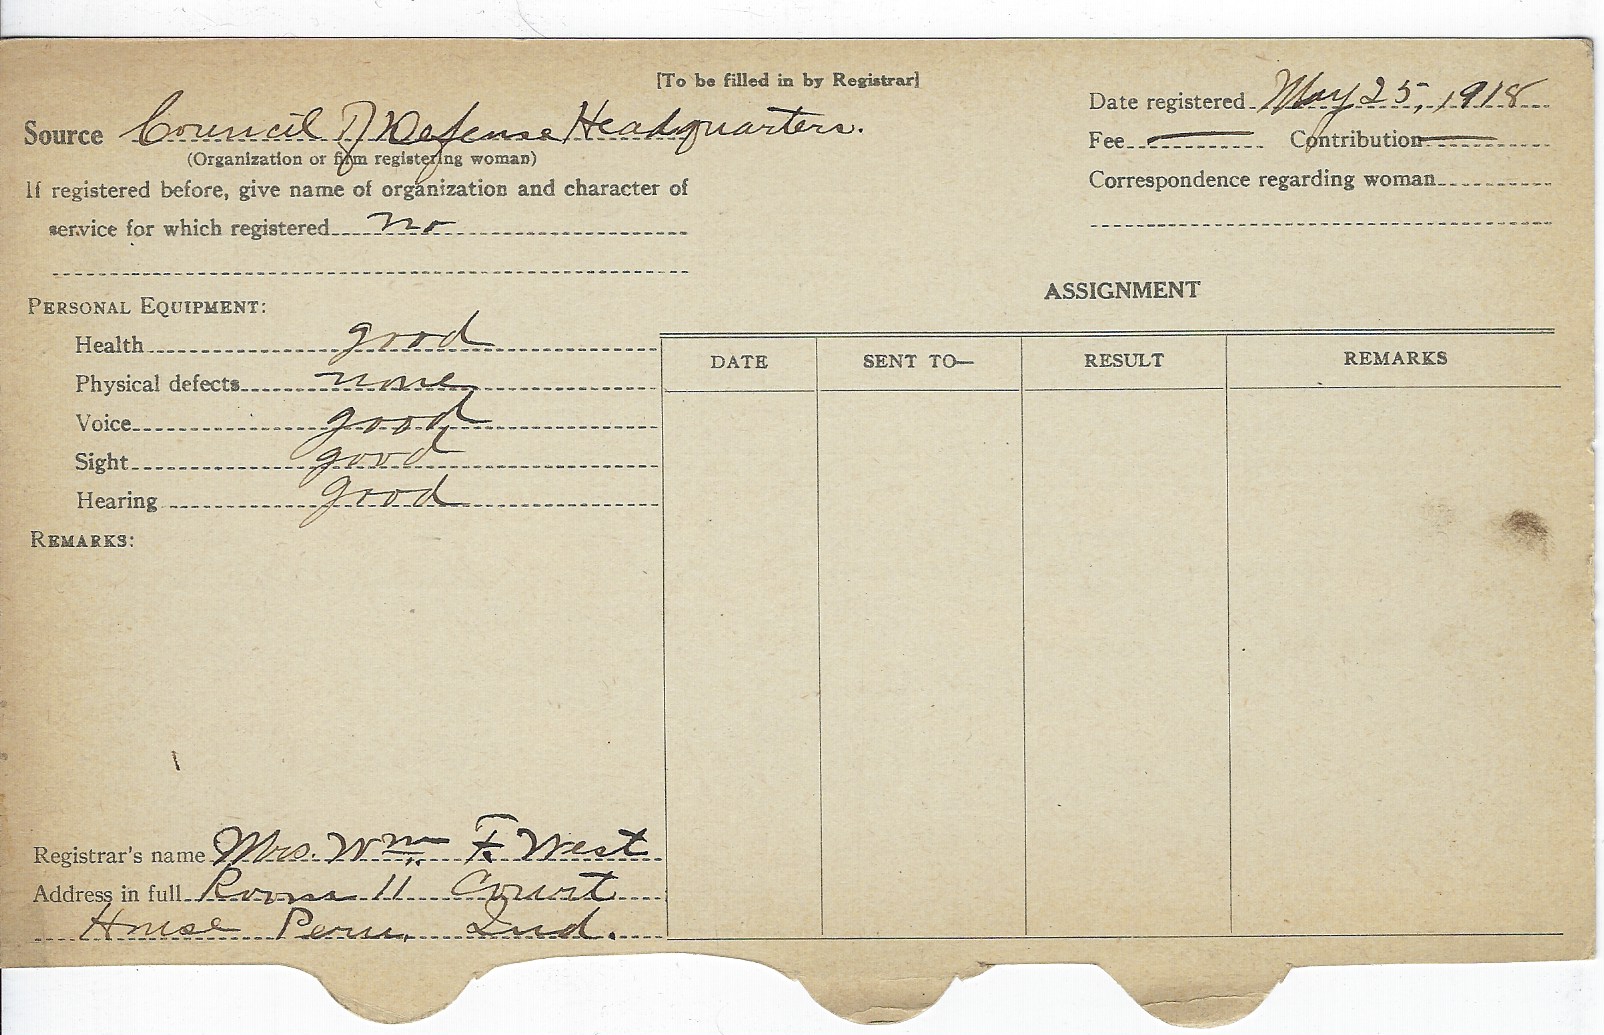 [To be filled in by Registrar]
Source Council of Defense Headquarters.
(Organization or firm registering woman)
If registered before, give name of organization and character of
service for which registered no
Date registered May 25, 1918
Fee — Contribution —
Correspondence regarding woman
PERSONAL EQUIPMENT:
Health good
Physical defects none
Voice good
Sight good
Hearing good
REMARKS:
ASSIGNMENT
DATE SENT TO— RESULT REMARKS
Registrar's name Mrs. Wm. F. West
Address in full Room 11 Court
House Peru, Ind.